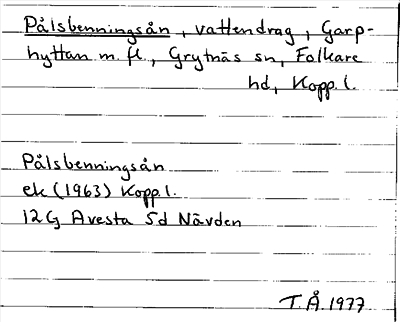 Pålsbenningsån, vattendrag, Garp-
hyttan m. fl., Grytnäs sn, Folkare
hd, Kopp. l.
Pålsbenningsån
ek (1963) Kopp. l.
12G Avesta 5d Nävden
T. Å. 1977